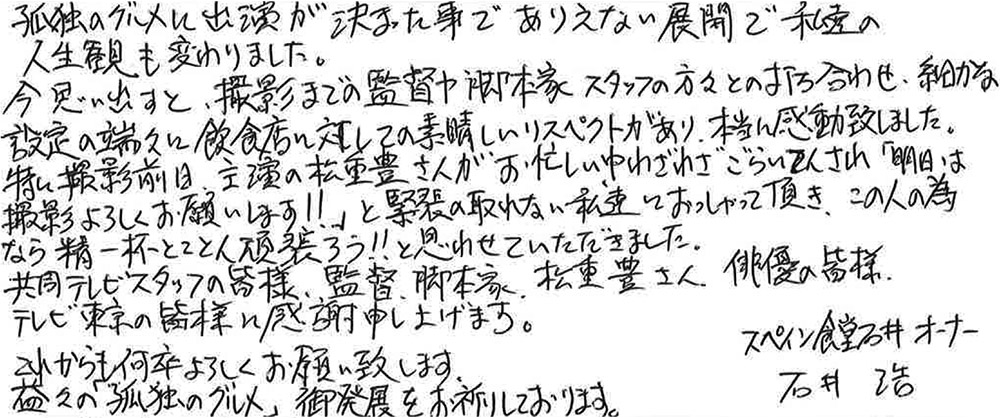 孤独のグルメに出演が決まった事でありえない展開で私達の
人生観も変わりました。
今思い出すと、撮影までの監督や脚本家スタッフの方々との打ち合わせ、細かな
設定の端々に飲食店に対しての素晴しいリスペクトがあり、本当に感動致しました。
特に撮影前日、主演の松重豊さんがお忙しい中わざわざごらいてんされ「明日は
撮影よろしくお願いします!!」と緊張の取れない私達におっしゃって頂き、この人の為
なら精一杯とことん頑張ろう!!と思わせていただきました。
共同テレビスタッフの皆様、監督、脚本家、松重豊さん、俳優の皆様、
テレビ東京の皆様に感謝申し上げます。
これからも何卒よろしくお願い致します。
益々の「孤独のグルメ」御発展をお祈りしております。
スペイン食堂石井 オーナー
石井 浩